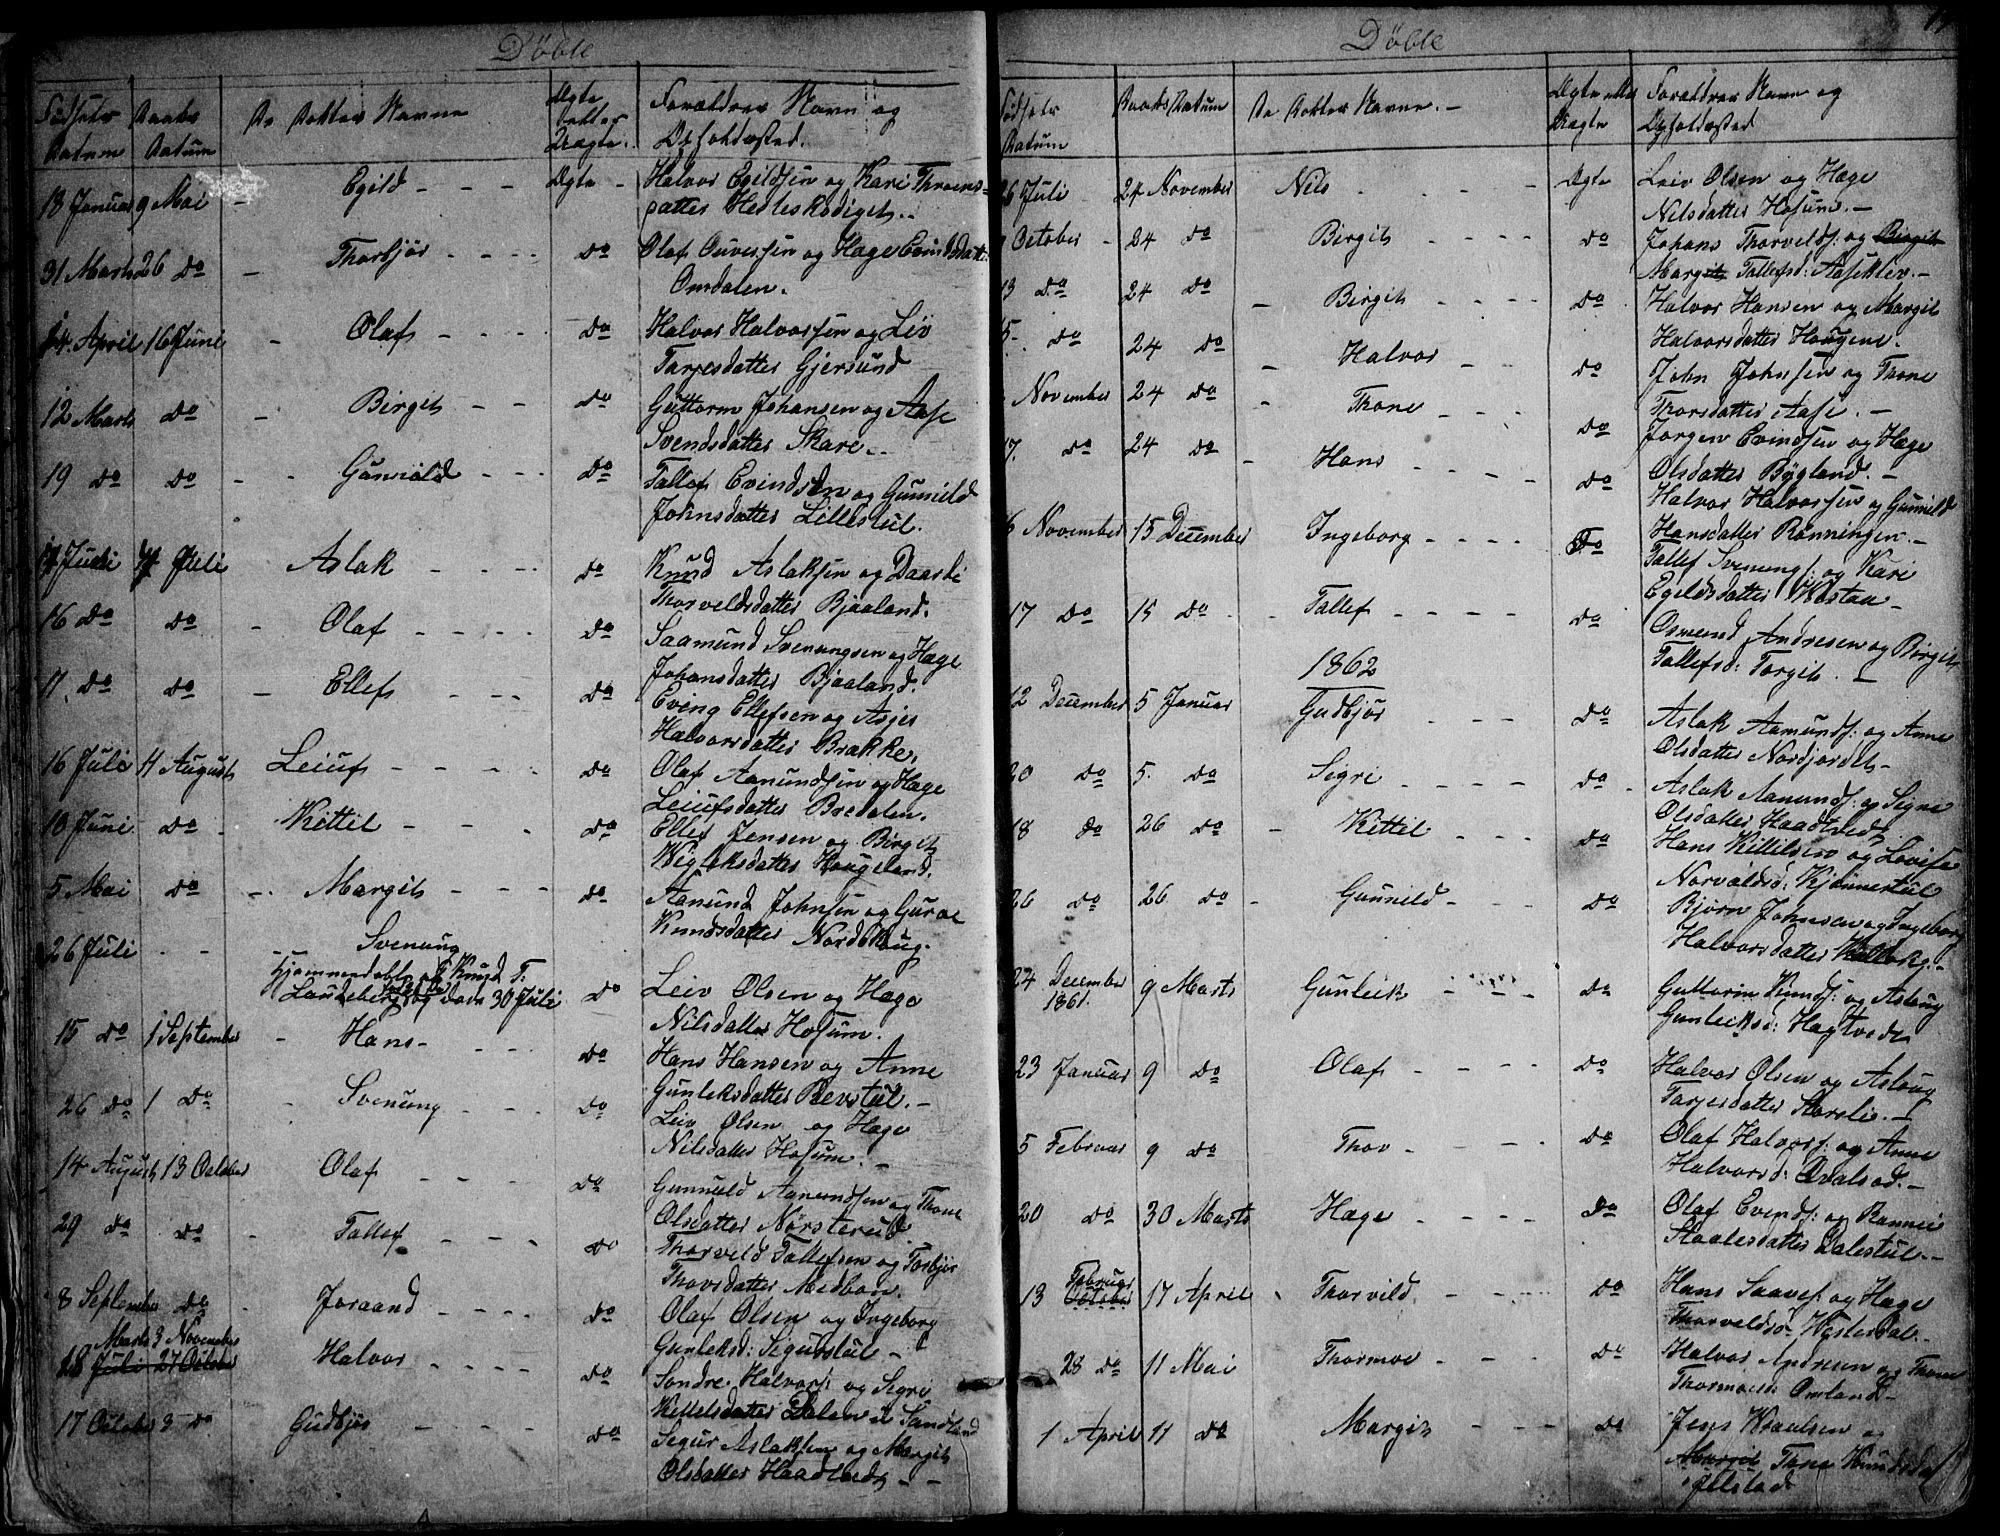 Døbte
Fødsels Daabs De Døbtes Navne Ægte eller Forældres Navn og
Datum Datum Uægte. Opholdssted.
18 Januar 9 Mai Egild - - - Ægte - Halvor Egildsen og Kari
datter
31 Marts 26 do - Thorbjør - - - - do Olaf og Hæge
Omdalen.
14. April 16 Juni - Olaf - - do Halvor Halvorsen og Liv
Tarjesdatter Gjersund
12 Marts do - Birgit - - do Guttorm Johansen og Aase
Svendsdatter Skare.
19 do do - - Gunild - - - do Tallef Evindsen og Gunnild
Johnsdatter Lillestul.
Juli Juli Aslak - - - do Knud Aslaksen og
Thorveldsdatter Bjaaland.
16 do do - Olaf - - - - do Saamund Svenungsen og Hæge
Johansdatter Bjaaland.
17. do do - Ellef - - - do Eving Ellefsen og
Halvorsdatter Brække.
16 Juli 11 August Leiuf - - - - do Olaf Aanundsen og Hæge
Leiufsdatter Bredalen.
10 Juni - do - Kittil - - - do Ellef Jensen og Birgit
Haugeland.
5 Mai do - Margit - - - do Aanund Johnsen og
Knudsdatter Nordskoug.
26 Juli - - Svenung
Hjemmedøbt af Knud T:
og døde 30 Juli do Leiv Olsen og Hæge
Nilsdatter Hosum.
15 do 1 September - Hans - - - do Hans Hansen og Anne
Gunleksdatter Revstul. -
26 do 1 do - Svenung - - - do Leiv Olsen og Hæge
Nilsdatter Hosum. -
14 August 13 October Olaf - - - do Gunnuld Aanundsen og Thone
Olsdatter Nørsterud
29 do do - Tallef - - - do Thorveld Tallefsen og Torbjør
Thovsdatter Medboen.
8 September do - Joraand - - - - do Olaf Olsen og Ingeborg
Gunleksd: Sigurstul -
Marts 3 November
18 Juli 27 October Halvor - - - - do Sondre Halvors: og Sigri
Kittelsdatter Dalen i Sandland
17 October 3 do Gudbjør - - - do Sigur Aslaksen og Margit
Olsdatter Haadtvedt - -
Døbte
Fødsels Daabs Datum De Døbtes Navne. - Ægte eller Forældres Navne og
Datum Uægte Opholdssted
26 Juli 24 November Nils - - - Ægte Leiv Olsen og Hæge
Nilsdatter Hosum. -
October 24 do Birgit - - - - do Johans Thorvelds: og Birgit
Margit Tallefsd: Aaseklev. -
13 do 24 do - Birgit - - - - do Halvor Hansen og Margit
Halvorsdatter Haugene.
15 do 24 do - Halvor - - - do John Johnsen og Thone
Thorsdatter Aase. -
November 24 do - Thone - - - do Jorgen Evindsen og Hæge
Olsdatter Bygland. -
17. do 24 do - Hans - - do Halvor Halvorsen og Gunnild
Hansdatter Rønningen. -
6 November 15 December Ingeborg - - - - do Tallef Svenungs: og Kari
Egildsdatter
17 do 15 do - - Tallef - - - - do Osmund Andresen og Birgit
Tallefsd: Torgit. -
1862
12 December 5 Januar Gudbjør - - - do Aslak Aamunds: og Anne
Olsdatter Nordjordet -
20 do 5. do - Sigri - - - - do Aslak Aanunds: og Signe
Olsdatter Haadtvedt
18 do 26 do - Kittil - - - do Hans Kittilsen og Lovise
Norvaldsd: Kjønnestul
26 do 26 do - Gunnild - - - do Bjørn Johnsen og Ingeborg
Halvorsdatter
24 December 9 Marts Gunleik - - - do Guttorm Knuds: og Aslaug
1861. Gunleiksd: Hægtvedt
23 Januar 9 do Olaf - - - - do Halvor Olsen og Aslaug
Tarjesdatter
5 Februar 9 do Thov - - - do Olaf Halvors: og Anne
Halvorsd: -
20 do 30 Marts Hæge - - - - do Olaf Evends: og Rannei
Staalesdatter Dalestul. -
Februar
13 October 17 April Thorvild - - - - do Hans Saaves: og Hæge
Thorveldsd Vesterdal. -
28 do 11 Mai Thormoe - - - do Halvor Andresen og Thone
Thormoesd: Omland -
1 April 11 do Margit - - - do Jens og
Margit Tone Knudsda